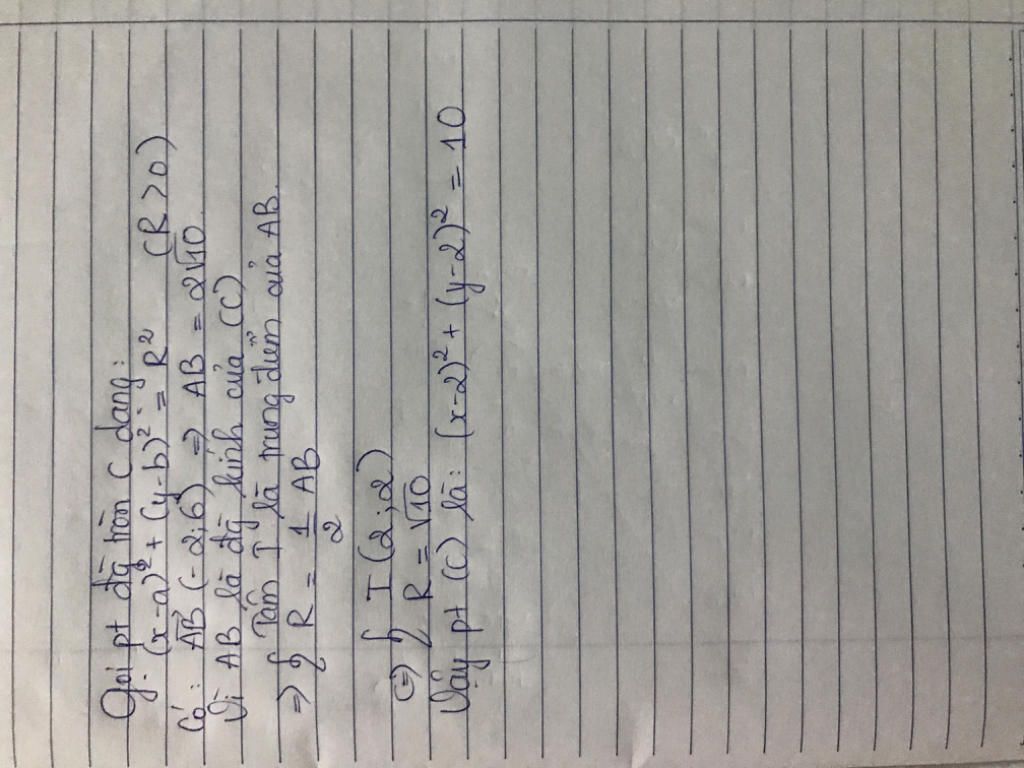 Gọi pt đg tròn C dạng:
(x-a)² + (y-b)² = R² (R>0)
Có: AB⃗ (-2;6) => AB = 2√10.
Vì AB là đg kính của (C)
=> { Tâm I là trung điểm của AB.
R = 1/2 AB
<=> { I (2;2)
R = √10
Vậy pt (C) là: (x-2)² + (y-2)² = 10